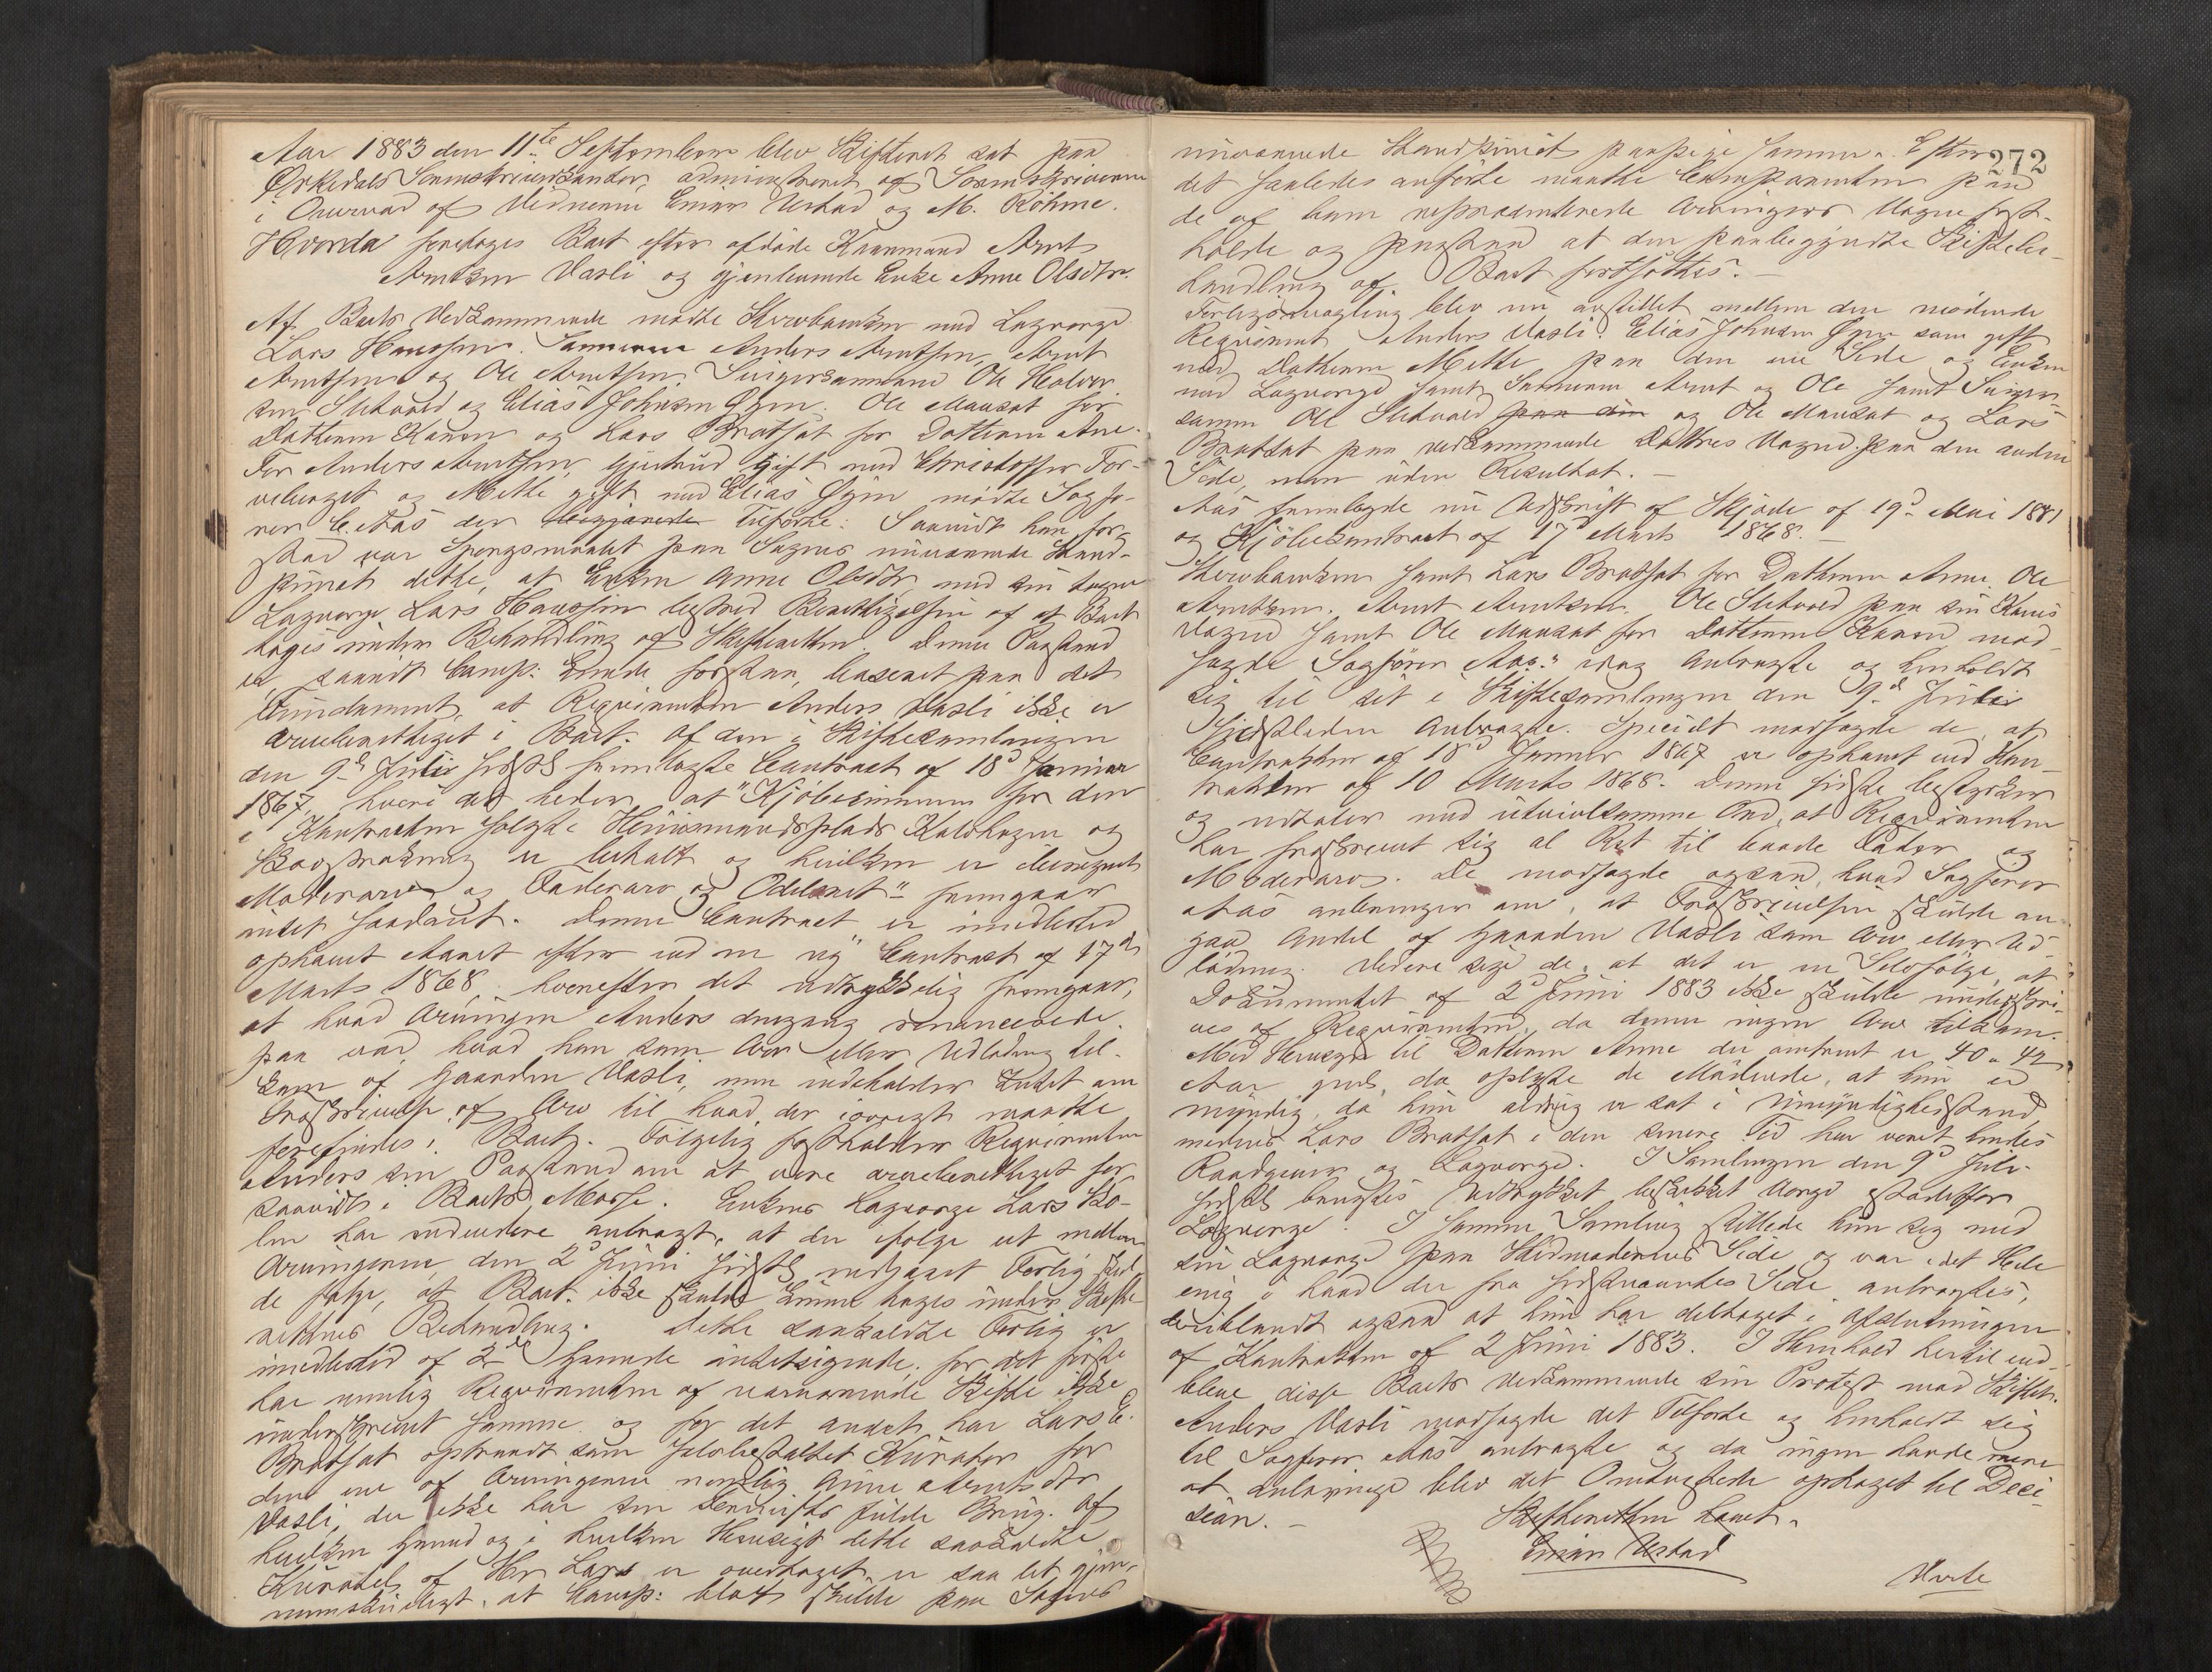 Aar 1883 den 11te September blev Skifteret sat paa
Ørkedals Sorenskriverkontor, administreret af Sorenskriveren
i Overvær af Vidnerne Einar Ustad og M. Rohme.
Hvorda foretoges Boet efter afdøde Kaarmand Arnt
Arntsen Vasli og gjenlevende Enke Anne Olsdtr.
Af Boets Vedkommende mødte Stervboenken med Lagværge
Lars Haugsen. Sønnerne Anders Arntsen, Arnt
Arntsen og Ole Arntsen. Svigersønnerne Ole Halvor
sen Sletvold og Elias Johnsen Øyen. Ole Mauset for
Datteren Karen og Lars Bratset for Datteren Ane.
For Anders Arntsen, Gjertrud gift med Christoffer For-
og Mette gift med Elias Øyen mødte Sagfø-
rer C. Aas der tilførte: Saavidt han for-
stod var Spørgsmaalet paa Sagens nuværende Stand-
punct dette, at Enken Anne Olsdtr med sin
Lagværge Lars Haugsen bestred Berettigelsen af at Boet
toges under Behandling af Skifteretten. Denne Paastand
er, saavidt Comp: kunde forstaa, baseret paa det
Fundament, at Reqvirenten Anders Vasli ikke er
arveberettiget i Boet. Af den i Skiftesamlingen
den 9de Juli sidstl. fremlagte Contract af 18d Januar
1867, hvori det heder, at "Kjøbesummen for den
i Kontracten solgte Huusmandsplads Kaldhagen og
Skovstrækning er betalt og hvilken er iberegnet
Moderarv og Faderarv og Odelsret" fremgaar
intet saadant. Denne Contract er imidlertid
ophævet Aaret efter ved en ny Contract af 17de
Marts 1868, hvorefter det udtrykkelig fremgaar,
at hvad Arvingen Anders dengang renuncerede
paa var, hvad han som Arv eller Udløsning til-
kom af Gaarden Vasli, men indeholder Intet om
Fraskrivelse af Arv til hvad der iøvrigt maatte
forefindes i Boet. Følgelig fastholder Reqvirenten
Anders sin Paastand om at være arveberettiget for-
saavidt i Boets Masse. Enkens Lagværge Lars
har endvidere anbragt, at der ifølge et mellem
Arvingerne den 2d Juni sidstl. indgaaet Forlig skul-
de følge, at Boet ikke skulde kunne tages under Skifte
rettens Behandling. Dette saakaldte Forlig er
imedlertid af 2de Grunde intetsigende; for det første
har nemlig Reqvirenten af nærværende Skifte ikke
underskrevet samme og for det andet har Lars E.
Bratset optraadt som selvbestaltet Kurator for
den ene af Arvingerne nemlig Anne Arntsdtr
Vasli, der ikke har sin Fornufts fulde Brug. Af
hvilken Grund og i hvilken Henseigt dette saakaldte
Kuratel af Hr Lars er overtaget, er saa let gjen-
nemskueligt, at Comp: blot skulde paa Sagens
272
nuværende Standpunct paapege samme. Efter
det saaledes anførte maatte Comparenten paa
de af ham repræsenterede Arvingers Vegne fast-
holde og paastaa at den paabegyndte Skiftebe-
handling af Boet fortsættes. –
Forligsmægling blev nu anstillet mellem den mødende
Reqvirent Anders Vasli. Elias Johnsen Øyen som gift
med Datteren Mette paa den ene Side og Enken
med Lagværge samt Sønnerne Arnt og Ole samt Sviger-
sønnen Ole Sletvold paa den og Ole Mauset og Lars
Bratset paa vedkommende Døttres Vegne paa den anden
Side, men uden Resultat. –
Aas fremlagde nu Udskrift af Skjøde af 19d Mai 1881
og Kjøbekontract af 17d Marts 1868. –
Stervboenken samt Lars Bratset for Datteren Anne, Ole
Arntsen. Arnt Arntsen. Ole Sletvold paa sin Kones
Vegne samt Ole Mauset for Datteren Karen mod-
sagde Sagfører Aas's idag Anbragte og henholdt
sig til det i Skiftesamlingen den 9d Juli
sidstleden Anbragte. Specielt modsagde de, at
Contrakten af 18d Januar 1867 er ophævet ved Kon-
trakten af 10 Marts 1868. Denne sidste bestyrker
og udtaler med utvivlsomme Ord, at Reqvirenten
har fraskrevet sig al Ret til baade Fader og
Moderarv. De modsagde ogsaa, hvad Sagfører
Aas anbringer om, at Fraskrivelsen skulde an-
gaa Andel af Gaarden Vasli som Arv eller Ud-
løsning. Videre siger de, at det er en Selvfølge, at
Dokumentet af 2d Juni 1883 ikke skulde underskri-
ves af Reqvirenten, da denne ingen Arv tilkom.
Med Hensyn til Datteren Anne der omtrent er 40 a 42
Aar gml, da oplyste de Mødende, at hun er
myndig, da hun aldrig er sat i Umyndighedsstand,
medens Lars Bratset i den senere Tid har været hendes
Raadgiver og Lagværge. I Samlingen den 9d Juli
sidstl. brugtes Udtrykket beskikket Værge istedetfor
Lagværge. I samme Samling stillede hun seg med
sin Lagværge paa Stedmoderens Side og var i det Hele
enig i hvad der fra sidstnævntes Side anbragtes,
deriblandt ogsaa at hun har deltaget i Afslutningen
af Kontrakten af 2 Juni 1883. I Henhold hertil ned-
bleve disse Boets Vedkommende sin Protest mod Skiftet.
Anders Vasli modsagde det Tilførte og henholdt sig
til Sagfører Aas' anbragte og da ingen havde mere
at anbringe blev det Omtvistede optaget til Deci-
sion. –
Skifteretten hævet.
Einar Ustad
Verte